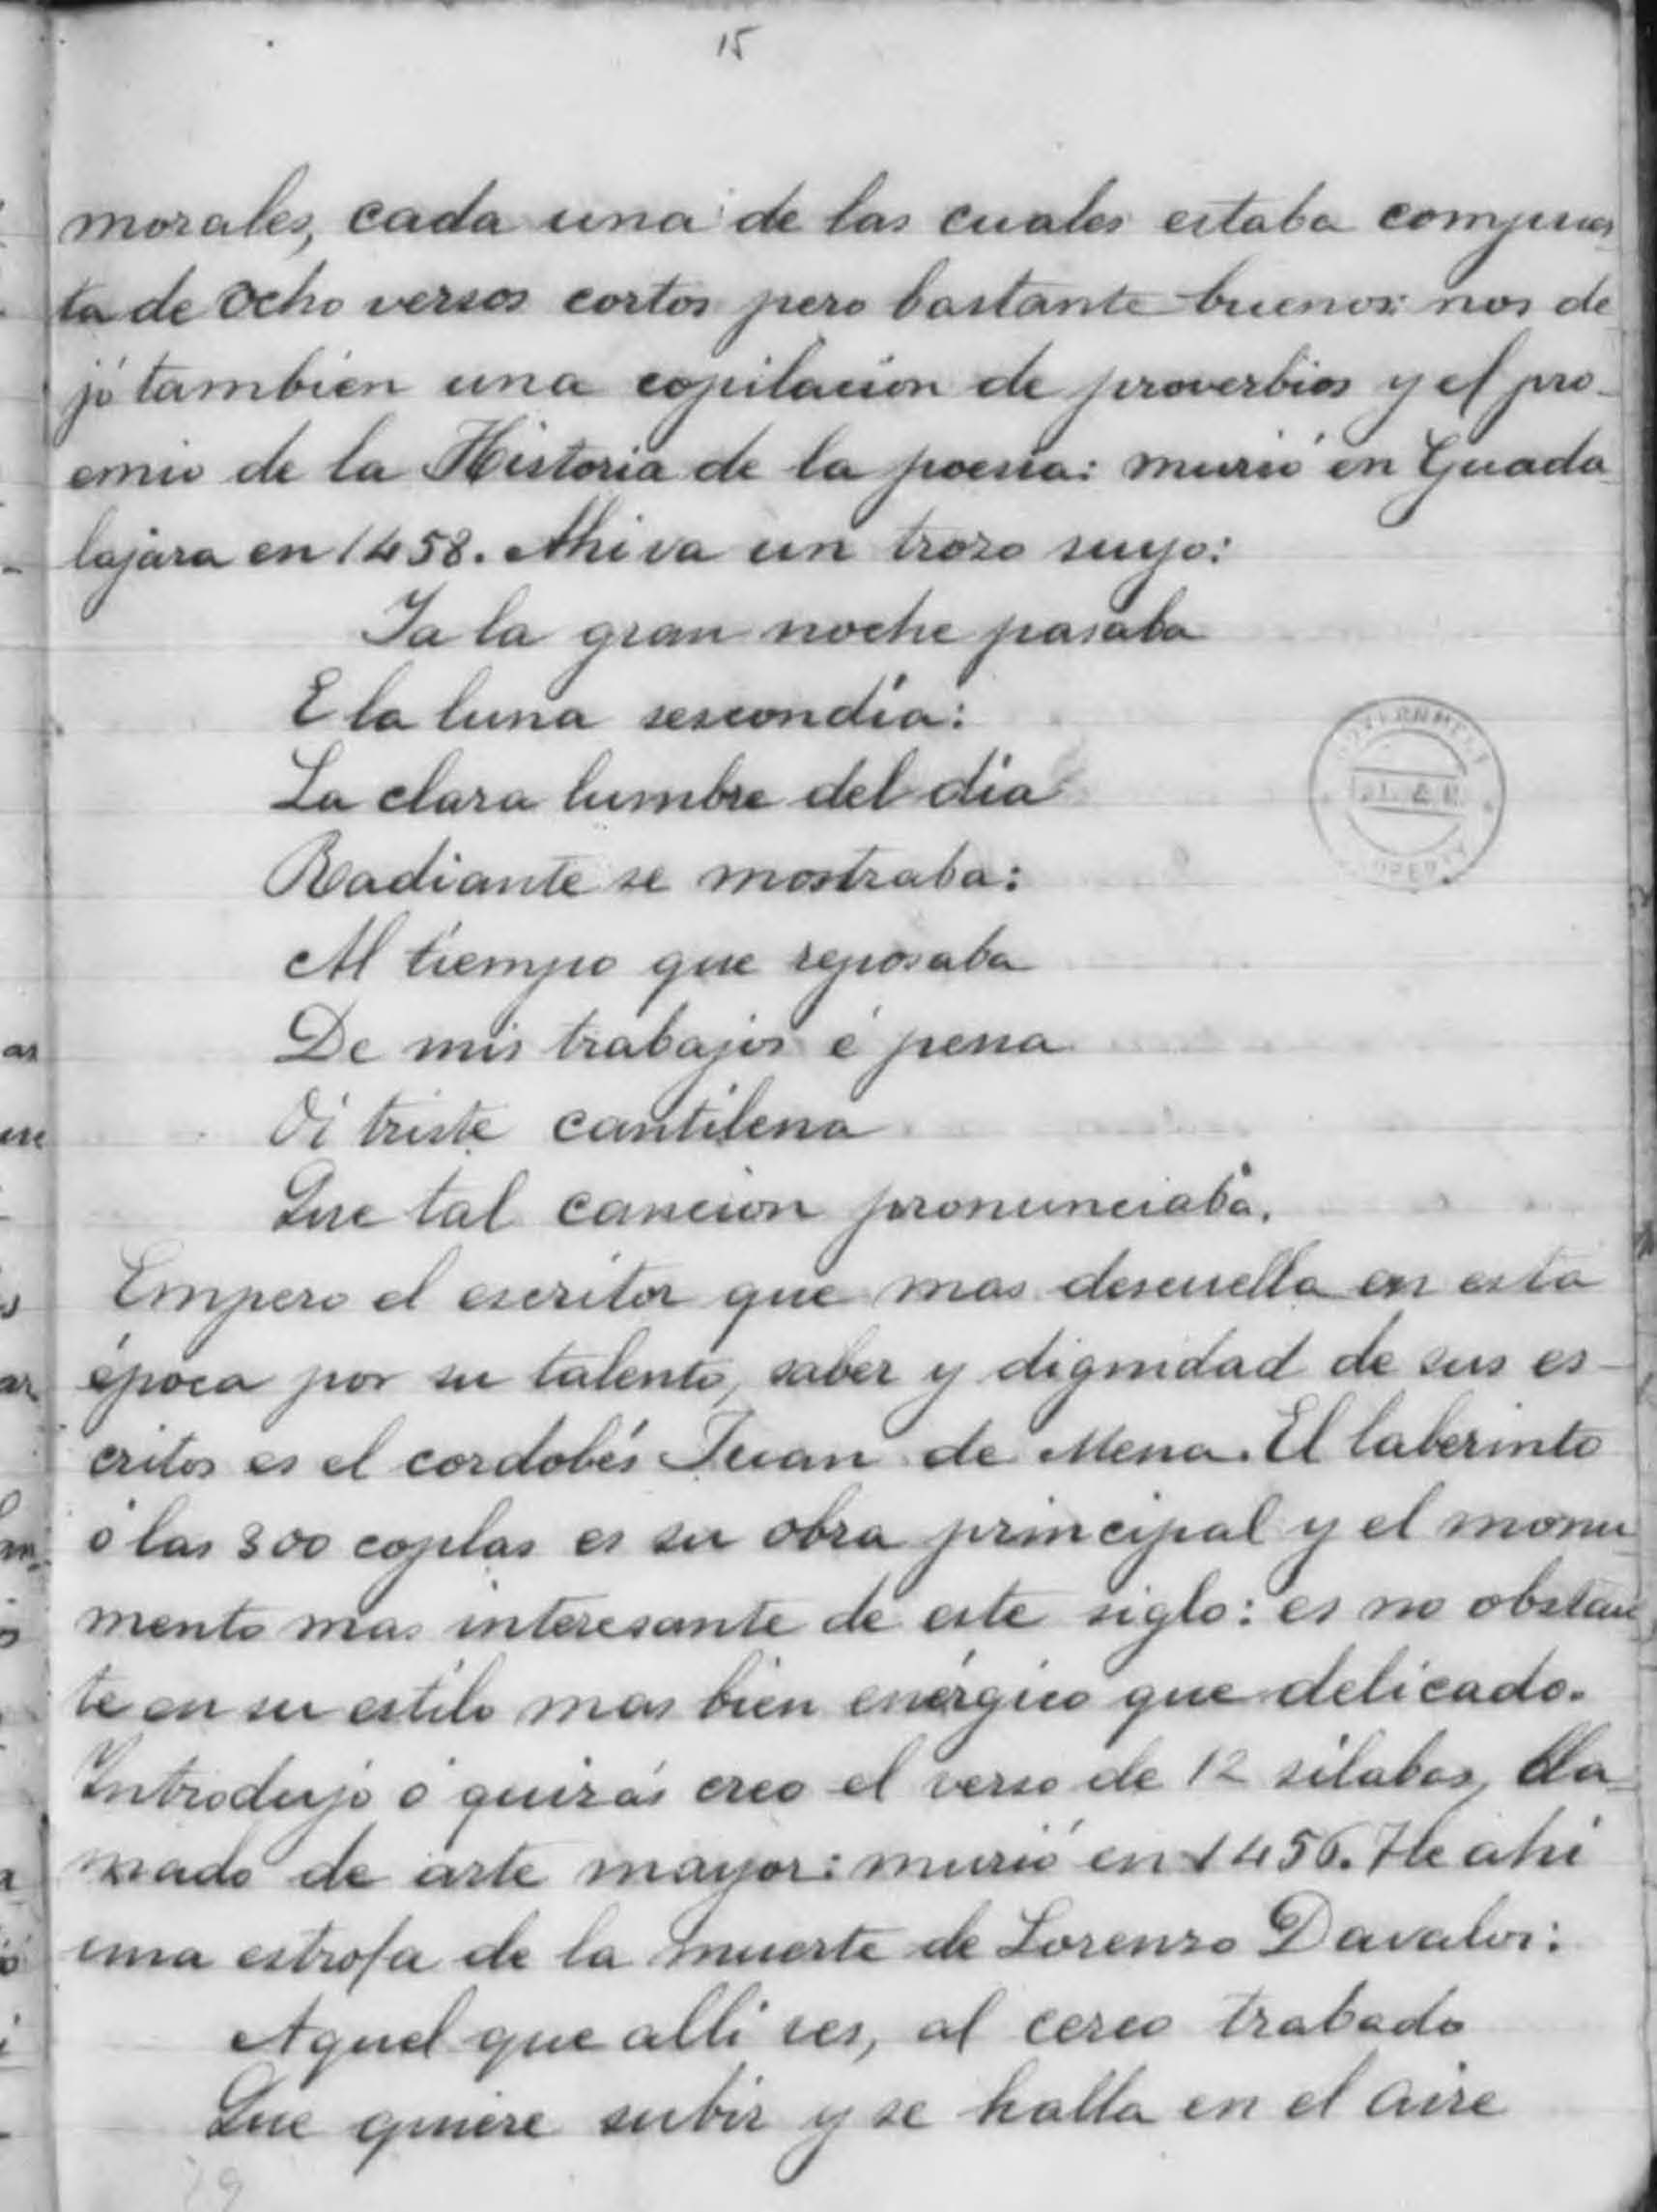 15
morales, cada una de las cuales estaba compues
ta de ocho versos cortos pero bastante buenos: nos de
jó tambien una copilacion de proverbios y el pro-
emio de la Historia de la poesia: murió en Guada
lajara en 1458. Ahi va un trozo suyo:
Ya la gran noche pasaba
E la luna sescondia:
La clara lumbre del dia
Radiante se mostraba:
Al tiempo que reposaba
De mis trabajos é pena
Oi triste cantilena
Que tal cancion pronunciaba.
Empero el escritor que mas descuella en esta
época por su talento, saber y dignidad de sus es-
critos es el cordobés Juan de Mena. El laberinto
ó las 300 coplas es su obra principal y el monu
mento mas interesante de este siglo: es no obstan
te en su estilo mas bien enérgico que delicado.
Introdujo ó quizás creo el verso de 12 silabas, lla
mado de arte mayor: murió en 1456. He ahi
una estrofa de la muerte de Lorenzo Davalos:
Aquel que alli ves, al cerco trabado
Que quiere subir y se halla en el aire
GOVERNMENT
PROPERTY